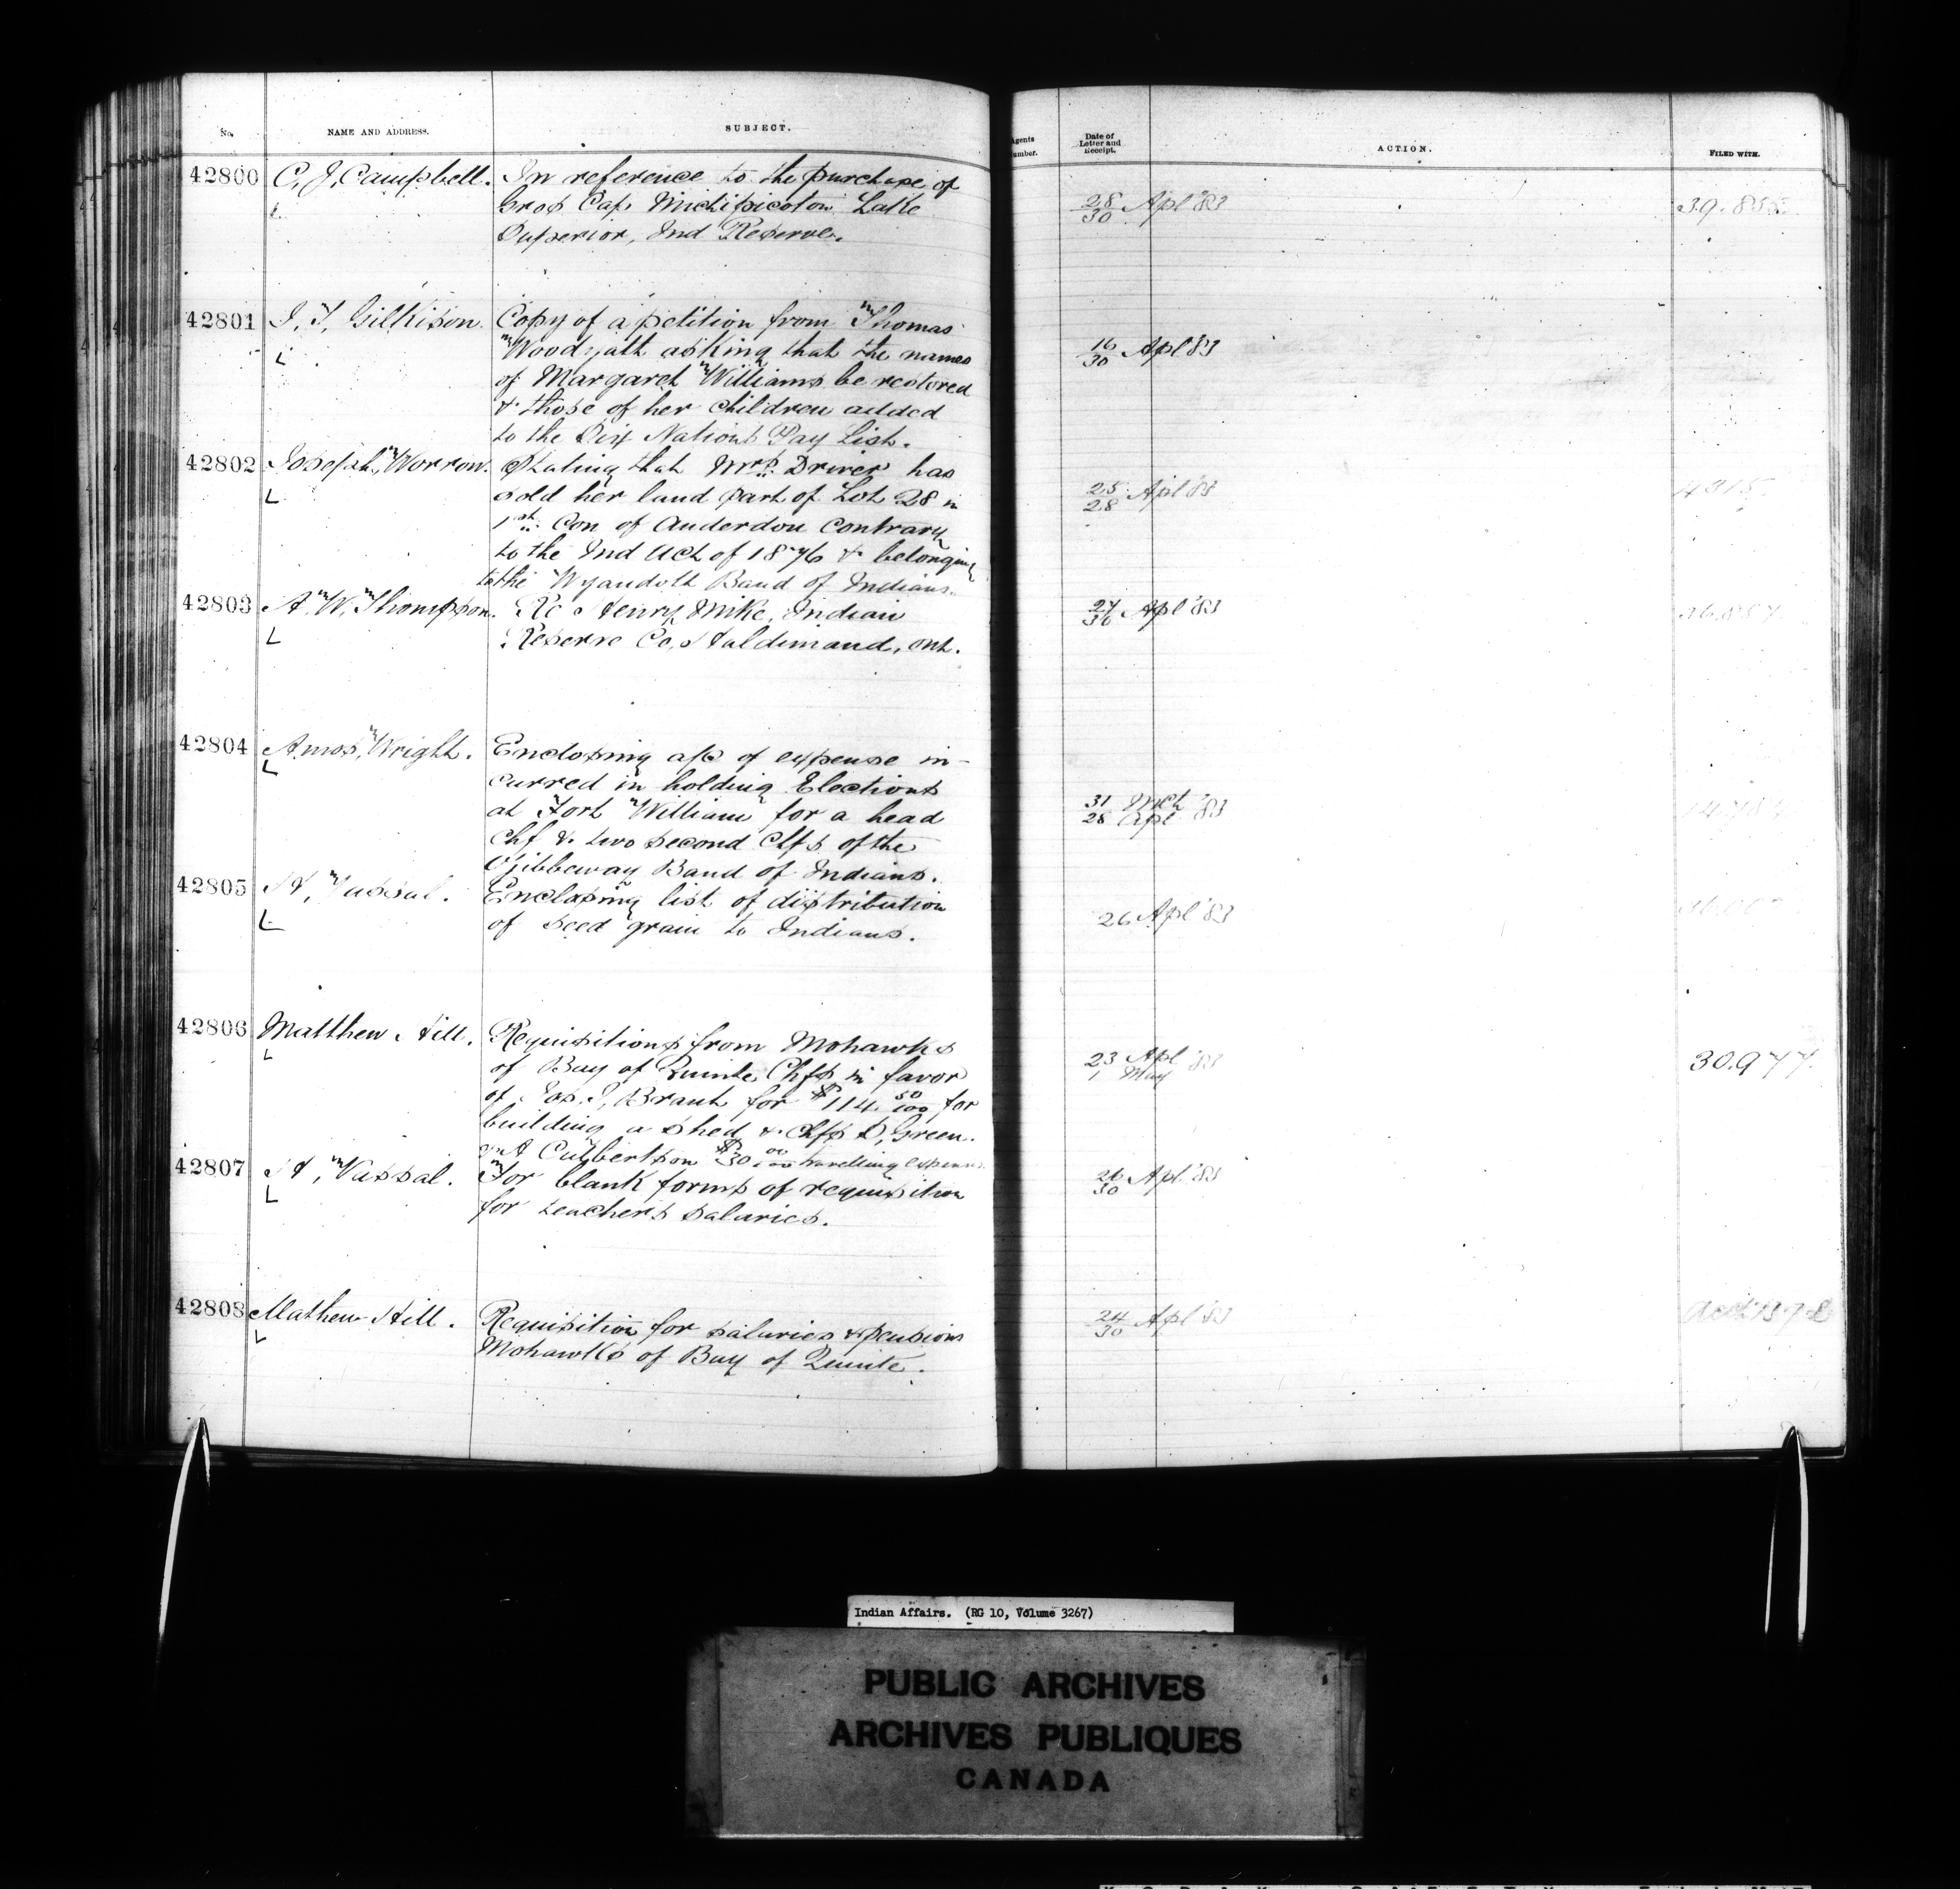 No. NAME AND ADDRESS. SUBJECT. Agents Number. Date of Letter and Receipt. ACTION. FILED WITH.
42800 C. J. Campbell. In reference to the purchase of
Gros Cap Michipicoton Lake
Superior, Ind Reserve.
28/30 Apl '83
42801 J. T. Gilkison. Copy of a petition from Thomas
Woodyatt asking that the names
of Margaret Williams be restored
& those of her children added
to the Six Nations Pay List.
16/30 Apl '83
42802 Joseph Worron. Stating that Mrs. Driver has
sold her land part of Lot 28 in
1st Con of Anderdon contrary
to the Ind Act of 1876 & belonging
to the Wyandott Band of Indians.
25/28 Apl '83
42803 A. W. Thompson. Re Henry Mike, Indian
Reserve Co, Haldimand, Ont.
27/30 Apl '83
42804 Amos Wright. Enclosing a/c of expense in-
curred in holding Elections
at Fort William for a head
Chf & two second Chfs of the
Ojibbeway Band of Indians.
31 Mch
28 Apl '83
42805 H, Vassal. Enclosing list of distribution
of seed grain to Indians.
26 Apl '83
42806 Matthew Hill. Requisitions from Mohawks
of Bay of Quinte Chfs in favor
of Jos. J, Brant for $114 50/100 for
building a shed & Chfs S, Green
& A Culbertson $30 00/100 travelling expenses.
23 Apl
1 May '83
30.977.
42807 H, Vassal. For blank forms of requisition
for teachers salaries.
26/30 Apl '83
42808 Mathew Hill. Requisition for salaries & pensions
Mohawks of Bay of Quinte.
24/30 Apl '83
Indian Affairs. (RG 10, Volume 3267)
PUBLIC ARCHIVES
ARCHIVES PUBLIQUES
CANADA